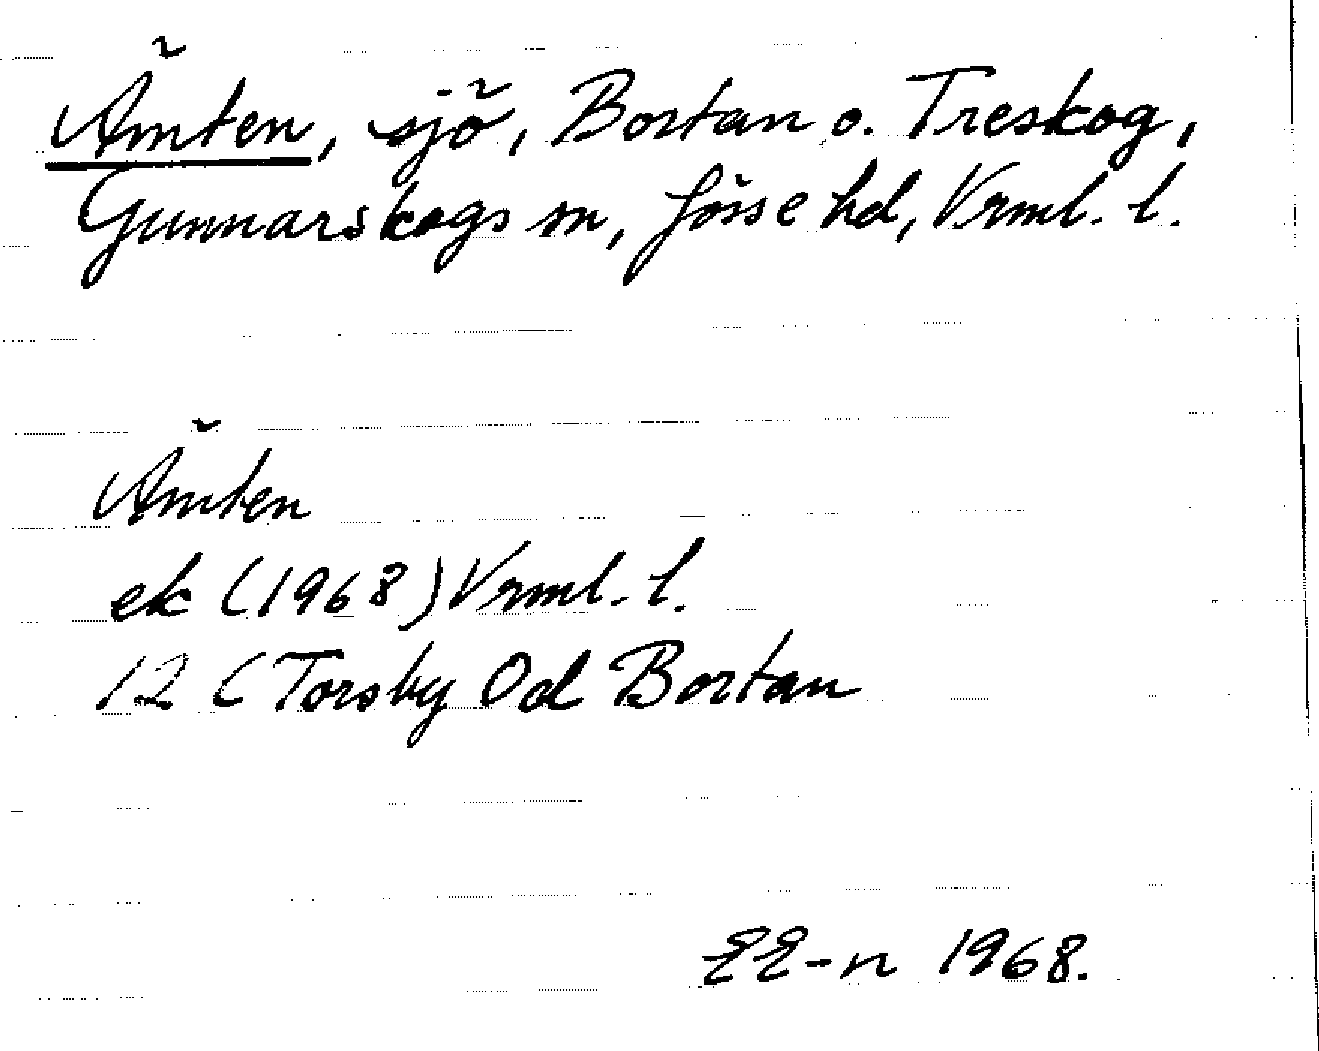 Ämten, sjö, Bortan o. Treskog,
Gunnarskogs sn, Jösse hd, Vrml. l.
Ämten
ek (1968) Vrml. l.
12 C Torsby Od Bortan
EE-n 1968.